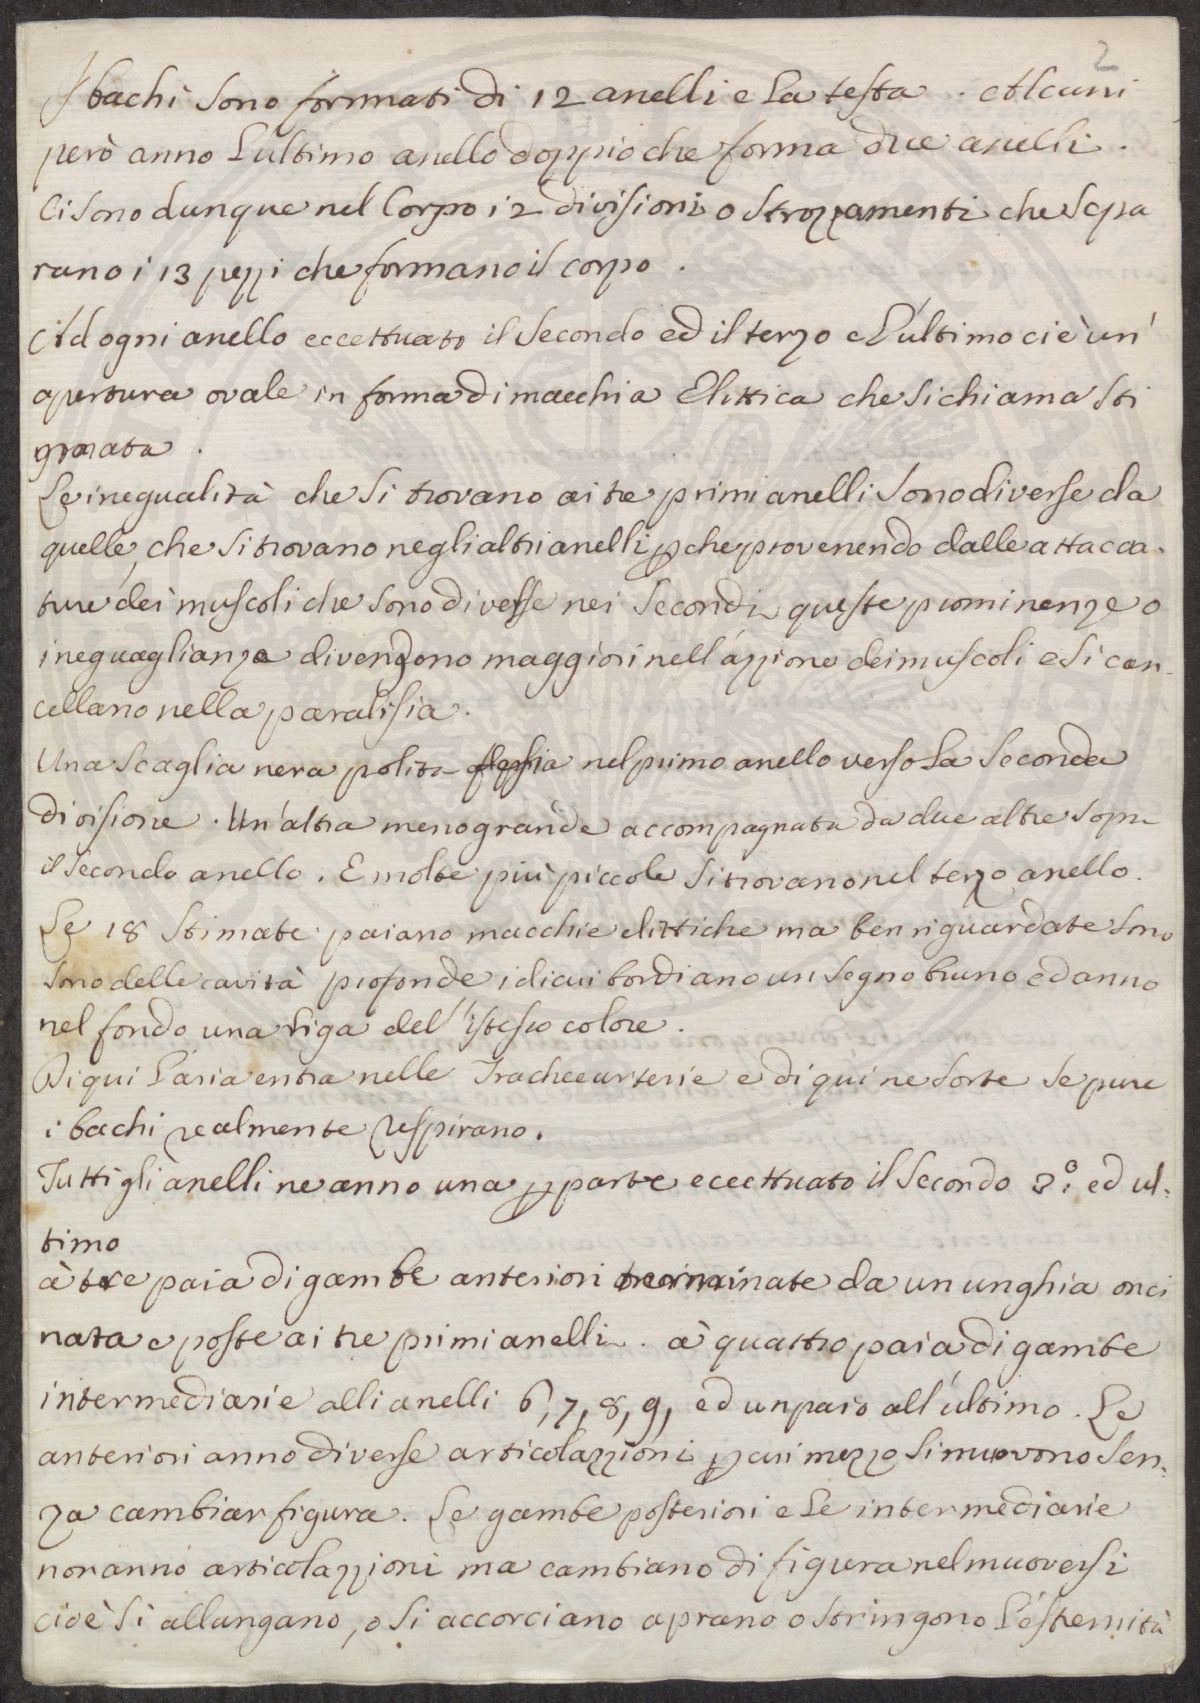 2
I bachi sono formati di 12 anelli e la testa. Alcuni
però anno l'ultimo anello doppio che forma due anelli.
Ci sono dunque nel Corpo 12 divisioni o strozzamenti che sepa
rano i 13 pezzi che formano il corpo.
Ad ogni anello eccettuato il Secondo ed il terzo e l'ultimo ci è un'
apertura ovale in forma di macchia Elittica che si chiama Sti
gmata.
Le inegualità che si trovano ai tre primi anelli sono diverse da
quelle, che si trovano negli altri anelli pche provenendo dalle attacca-
ture dei muscoli che sono diverse nei Secondi queste prominenze o
ineguaglianze divengono maggiori nell'azzione dei muscoli e si can-
cellano nella paralisia.
Una Scaglia nera polita nel primo anello verso la Seconda
divisione. Un'altra meno grande accompagnata da due altre Sopra
il Secondo anello. E molte più piccole si trovano nel terzo anello.
Le 18 Stimate paiano macchie elittiche ma ben riguardate sono
sono delle cavità profonde i di cui bordi ano un segno bruno ed anno
nel fondo una riga del'istesso colore.
Di qui l'aria entra nelle Tracheearterie e di qui ne sorte se pure
i bachi realmente respirano.
Tutti gli anelli ne anno una p parte eccettuato il Secondo 3.° ed ul-
timo
à tre paia di gambe anteriori terminate da un unghia onci
nata e poste ai tre primi anelli. à quattro paia di gambe
intermediarie alli anelli 6, 7, 8, 9, ed un paio all'ultimo. Le
anteriori anno diverse articolazzioni p cui mezzo si muovono sen-
za cambiar figura. Le gambe posteriori e le intermediarie
non anno articolazzioni ma cambiano di figura nel muoversi
cioè si allungano, o si accorciano aprano o stringono l'estremità